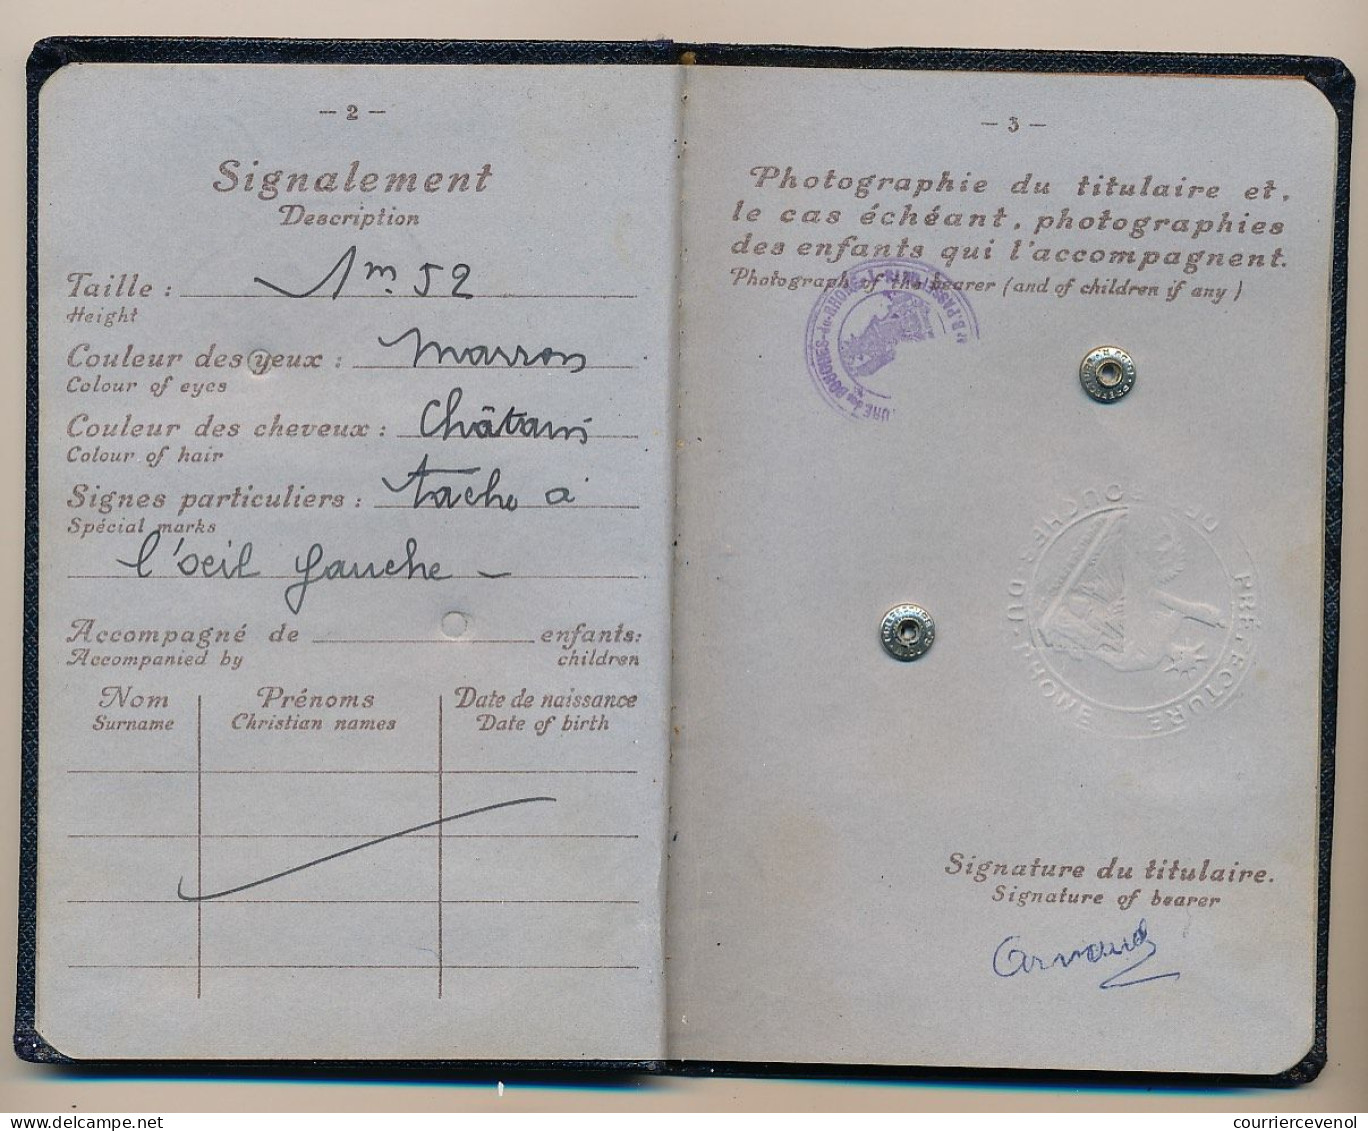 — 2 —
Signalement
Description
Taille : 1m 52
Height
Couleur des yeux : Marron
Colour of eyes
Couleur des cheveux : Châtain
Colour of hair
Signes particuliers : tache à
Spécial marks
l'oeil gauche —
Accompagné de enfants:
Accompanied by children
Nom Prénoms Date de naissance
Surname Christian names Date of birth
— 3 —
Photographie du titulaire et,
le cas échéant, photographies
des enfants qui l'accompagnent.
Photograph of the bearer (and of children if any)
URE des BOUCHES-du-RHONE
PRÉFECTURE
DES BOUCHES-DU-RHONE
Signature du titulaire.
Signature of bearer
Arnaud
courriercevenol.com